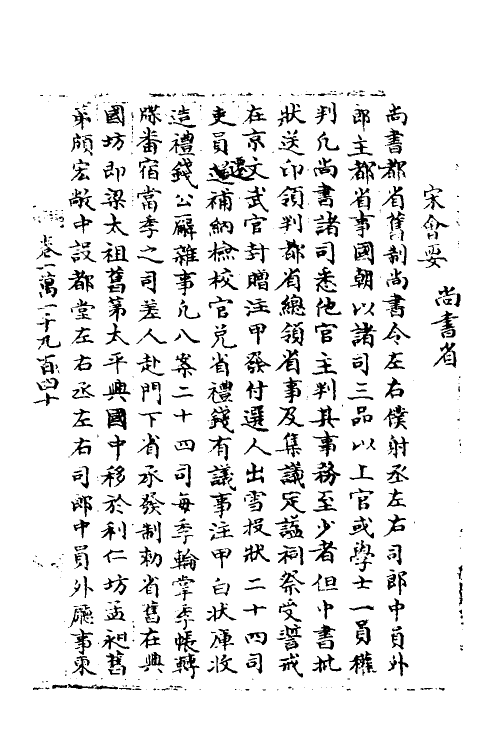 宋會要
尚書省
尚書都省舊制尚書令左右僕射丞左右司郎中員外
郎主都省事國朝以諸司三品以上官或學士一員權
判凡尚書諸司悉他官主判其事務至少者但中書批
狀送印領判都省總領省事及集議定謚祠祭受誓戒
在京文武官封贈注甲發付選人出雪投狀二十四司
吏員遷補納檢校官兑省禮錢有議事注甲白狀庫收
造禮錢公廨雜事凡八案二十四司每季輪掌季帳轉
牒畨宿當季之司差人赴門下省承發制勑省舊在興
國坊即梁太祖舊第太平興國中移於利仁坊孟昶舊
第頗宏敞中設都堂左右丞左右司郎中員外廳事東
卷一萬一千九百四十